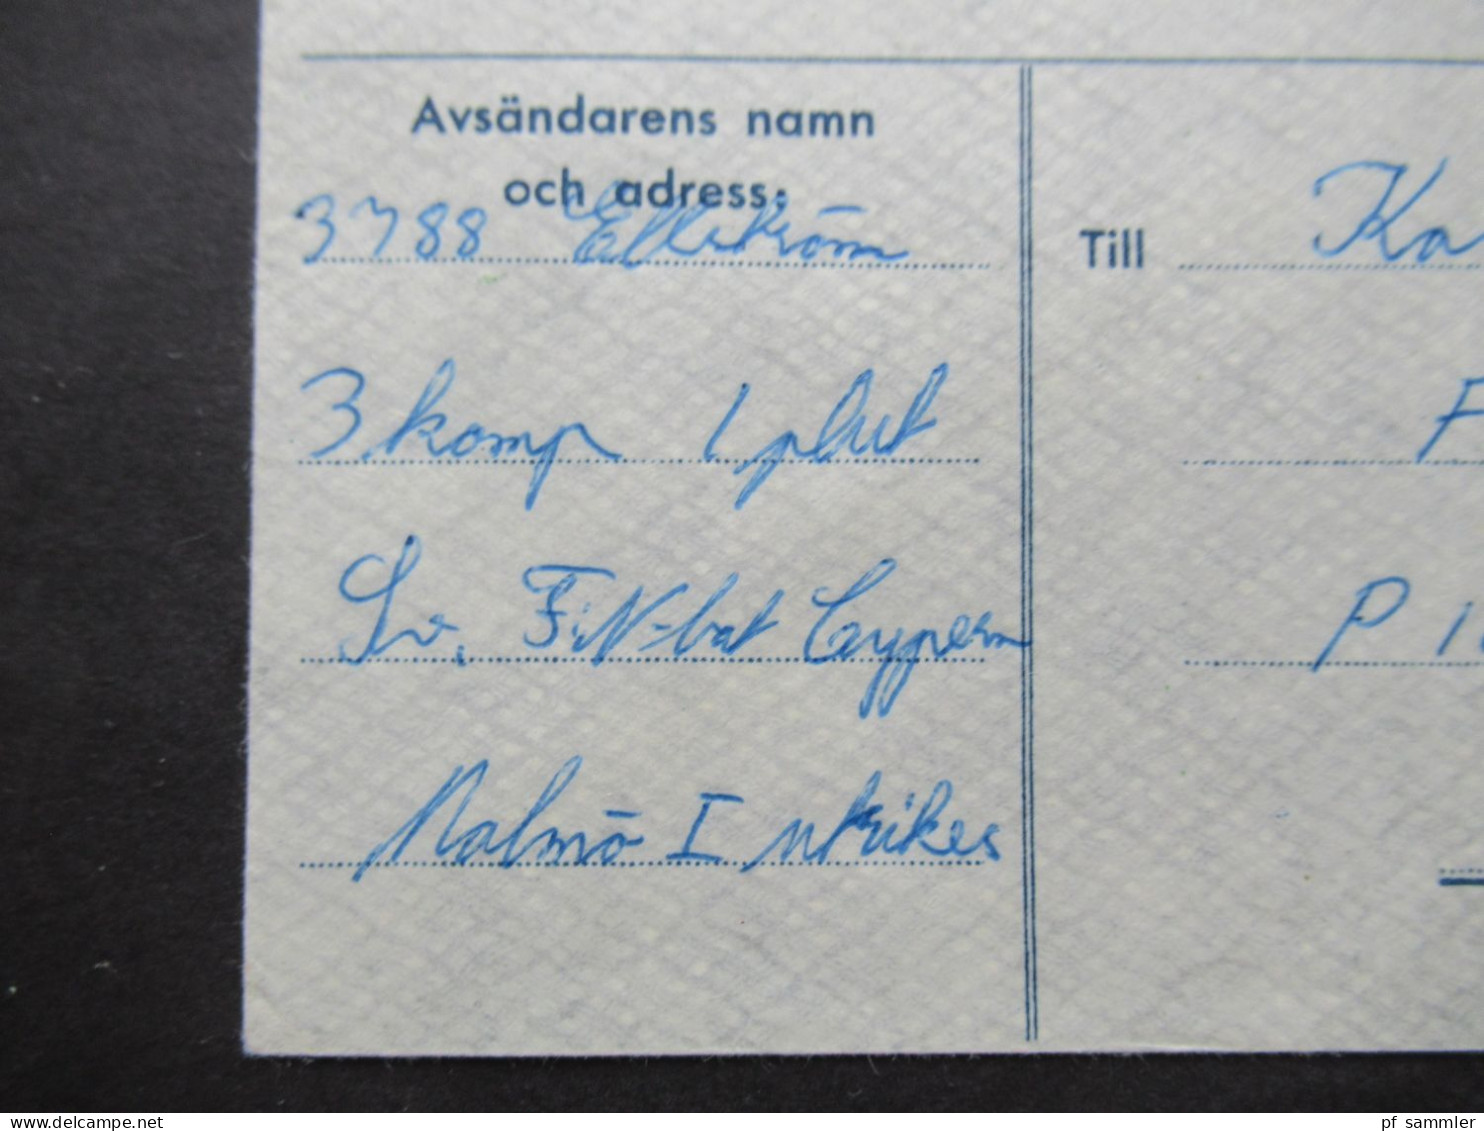 Avsändarens namn
och adress:
3788 Ellström
3 komp 1 plut
Sv. FN-bat Cypern
Malmö I utrikes
Till Ka
F
P
pf_sammler
www.delcampe.net